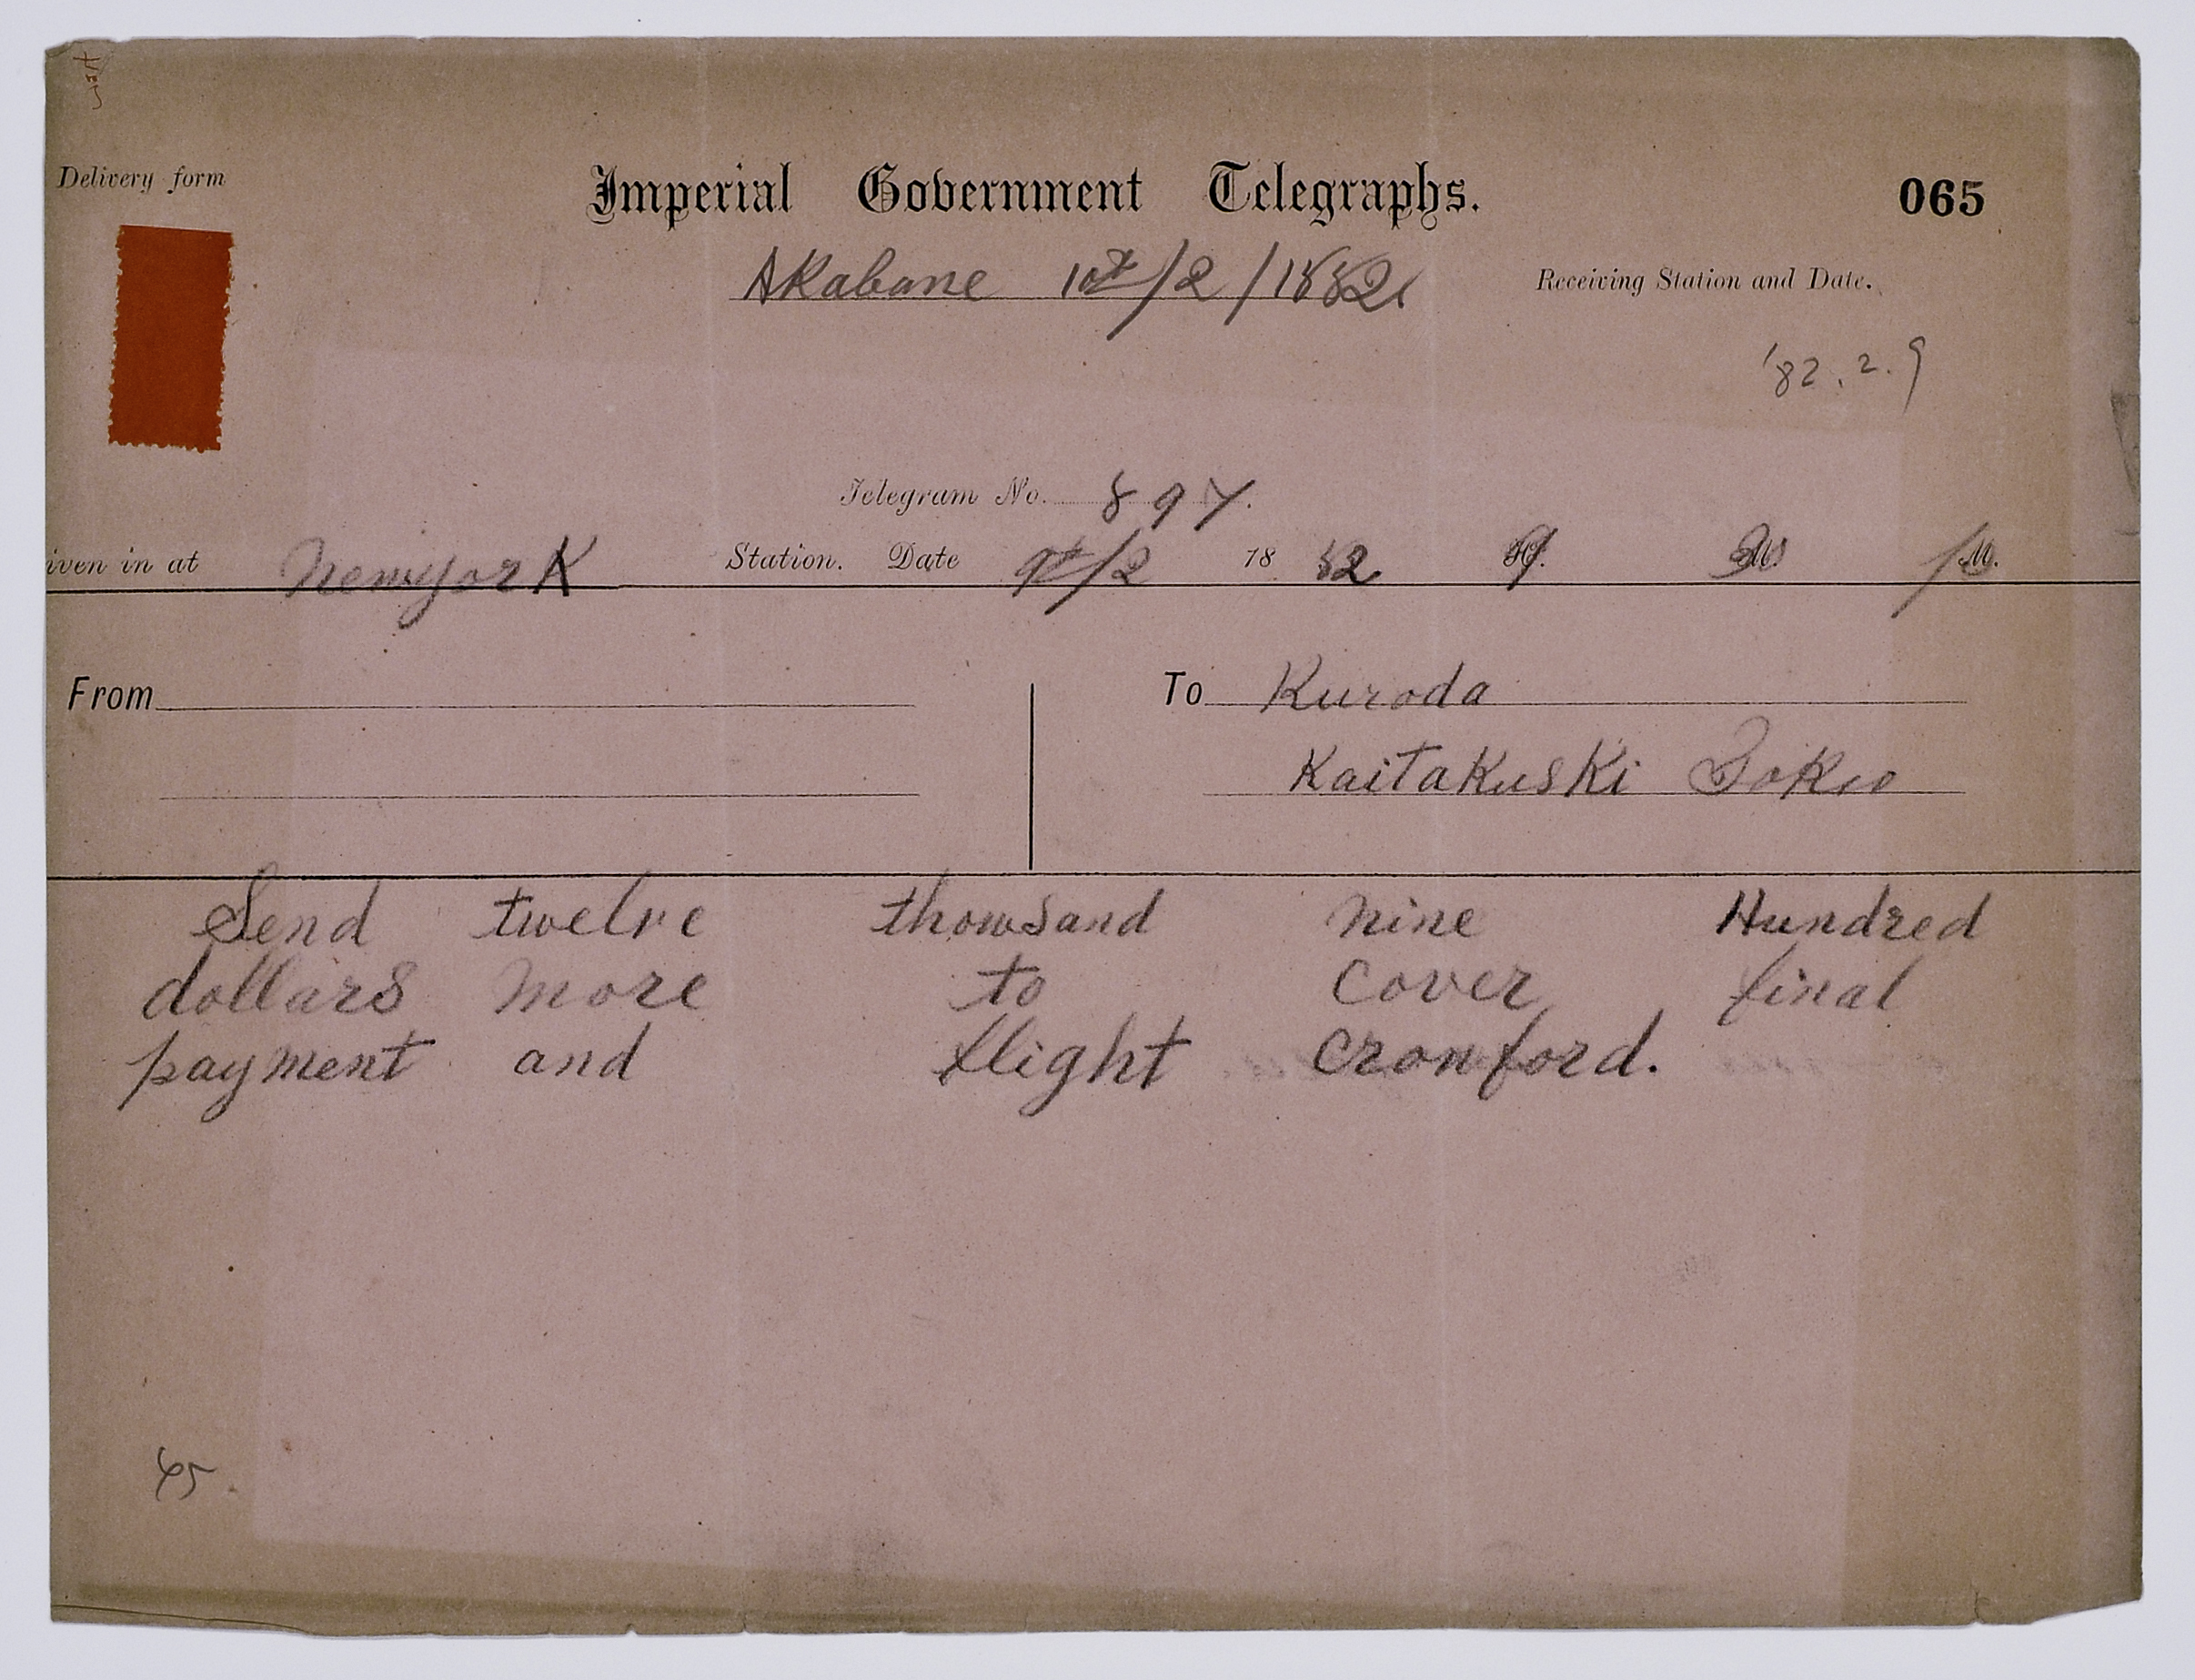 Delivery form
Imperial Government Telegraphs.
065
Akabane 10th/2/1882
Receiving Station and Date.
'82.2.9
Telegram No. 897.
iven in at Newyork Station. Date 9th/2 1882 H. M. M.
From
To Kuroda
Kaitakuski Tokio
Send twelve thousand nine Hundred
dollars more to cover final
payment and flight cronford.
45